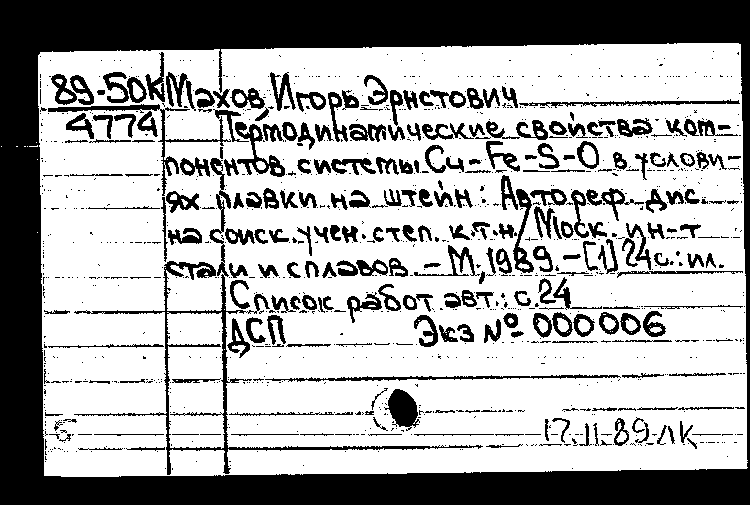 89-50К Махов, Игорь Эрнстович
4774 Термодинамические свойства ком-
понентов системы Cu-Fe-S-O в услови-
ях плавки на штейн: Автореф. дис.
на соиск. учен. степ. к.т.н./Моск. ин-т
стали и сплавов. - М., 1989. - [1] 24 с.: ил.
Список работ авт.: с. 24
ДСП Экз № 000006
б 17.11.89 ЛК